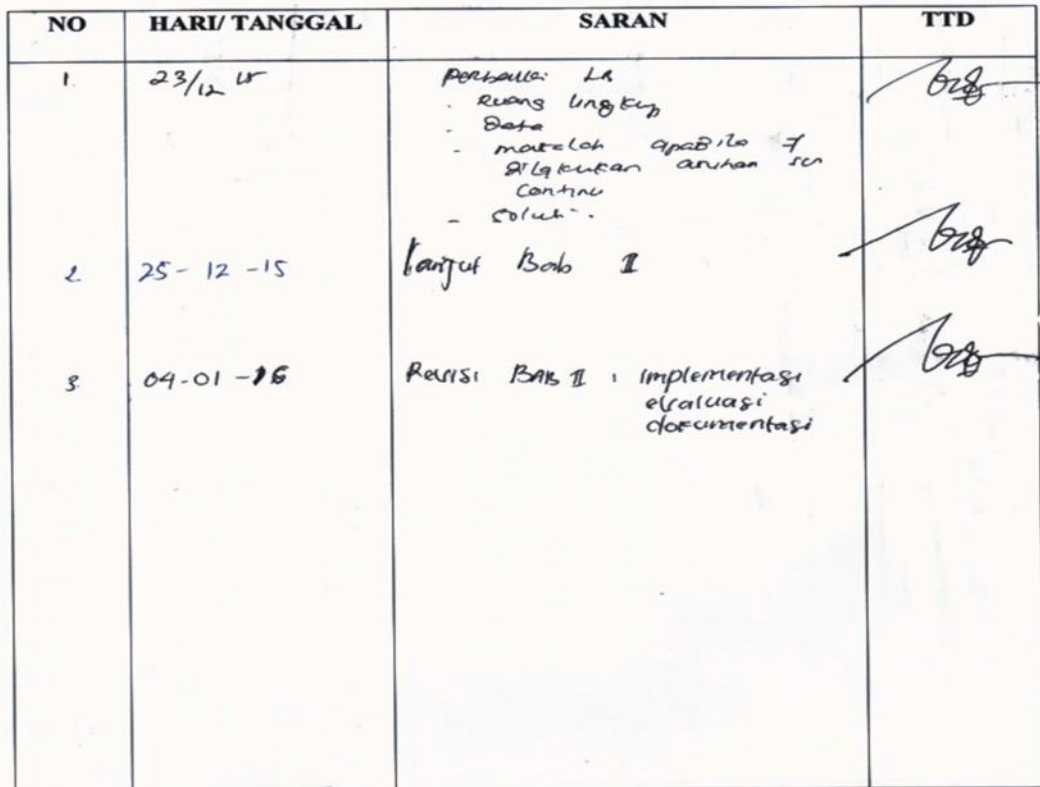 NO HARI/ TANGGAL SARAN TTD
1. 23/12 15 Perbaiki LB
- Ruang lingkup
- Data
- masalah apabila
dilakukan asuhan
continu
- solusi.
2 25-12-15 lanjut Bab II
3. 04-01-16 Revisi BAB II : implementasi
evaluasi
dokumentasi